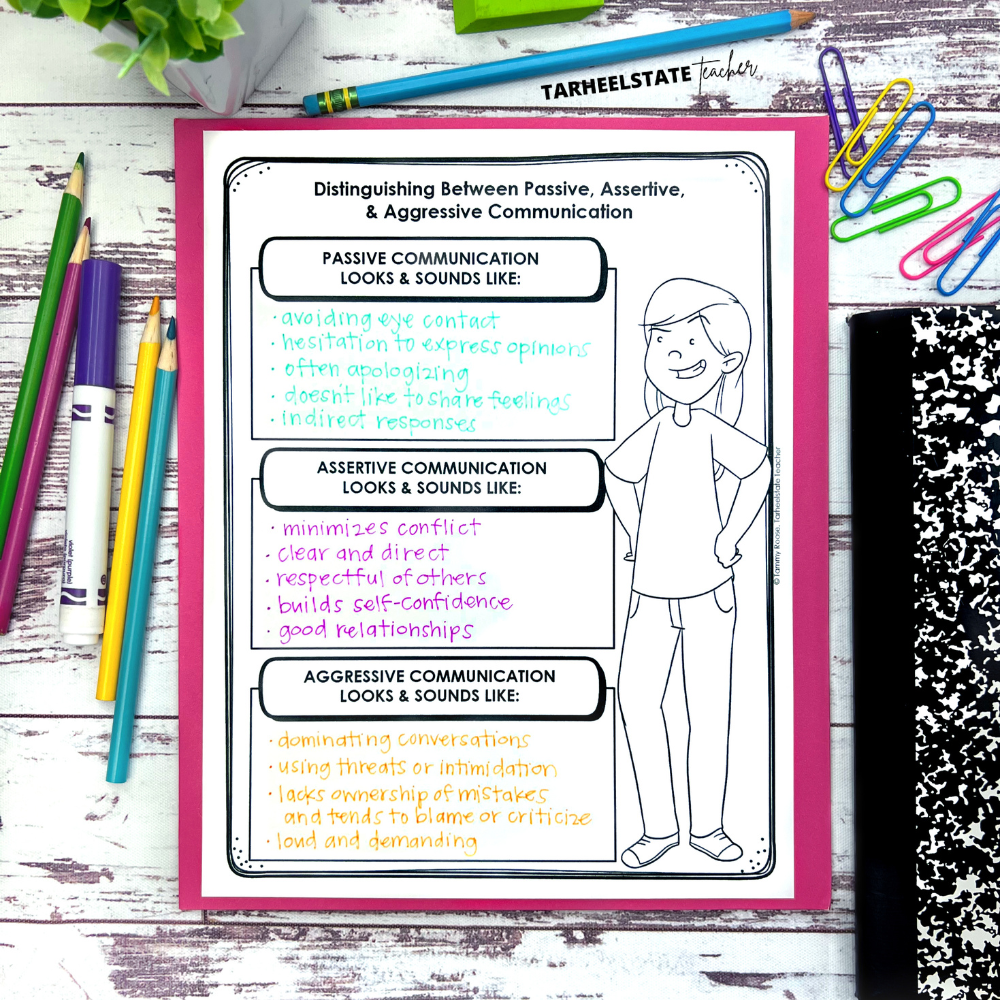 TARHEELSTATE teacher
Distinguishing Between Passive, Assertive,
& Aggressive Communication
PASSIVE COMMUNICATION
LOOKS & SOUNDS LIKE:
· avoiding eye contact
· hesitation to express opinions
· often apologizing
· doesn't like to share feelings
· indirect responses
ASSERTIVE COMMUNICATION
LOOKS & SOUNDS LIKE:
· minimizes conflict
· clear and direct
· respectful of others
· builds self-confidence
· good relationships
AGGRESSIVE COMMUNICATION
LOOKS & SOUNDS LIKE:
· dominating conversations
· using threats or intimidation
· lacks ownership of mistakes
and tends to blame or criticize
· loud and demanding
© Tammy Roose, Tarheelstate Teacher